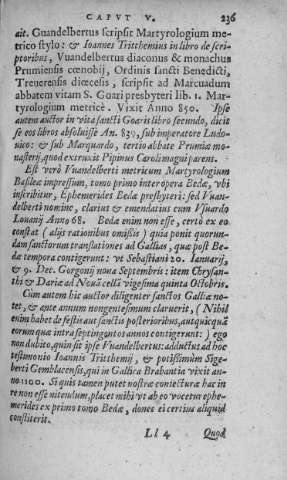 CAPVT V. 236
ait. Guandelbertus scripsit Martyrologium me-
trico stylo: & Ioannes Tritthemius in libro de scri-
ptoribus, Vuandelbertus diaconus & monachus
Prumiensis cœnobij, Ordinis sancti Benedicti,
Treuerensis diœcesis, scripsit ad Marcuadum
abbatem vitam S. Goari presbyteri lib. 1. Mar-
tyrologium metricè. Vixit Anno 850. Ipse
autem auctor in vita sancti Goaris libro secundo, dicit
se eos libros absoluisse An. 839, sub imperatore Ludo-
uico: & sub Marquardo, tertio abbate Prumiæ mo-
nasterij, quod extruxit Pipinus Caroli magni parens.
Est verò Vuandelberti metricum Martyrologium
Basileæ impressum, tomo primo inter opera Bedæ, vbi
inscribitur, Ephemerides Bedæ presbyteri: sed Vuan-
delberti nomine, clarius & emendatius cum Vsuardo
Louanij Anno 68. Bedæ enim non esse, certò ex eo
constat (alijs rationibus omißis) quia ponit quorun-
dam sanctorum translationes ad Gallias, quæ post Be-
dæ tempora contigerunt: vt Sebastiani 20. Ianuarij,
& 9. Dec. Gorgonij nona Septembris: item Chrysan-
thi & Dariæ ad Nouã cellã vigesima quinta Octobris.
Cùm autem hic auctor diligenter sanctos Galliæ no-
tet, & ante annum nongentesimum claruerit, (Nihil
enim habet de festis aut sanctis posterioribus, aut quicquã
eorum quæ intra septingentos annos contigerunt:) ego
non dubito, quin sit ipse Vuandelbertus: adductus ad hoc
testimonio Ioannis Tritthemij, & potißimùm Sige-
berti Gemblacensis, qui in Gallica Brabantia vixit an-
no 1100. Si quis tamen putet nostræ coniecturæ hac in
re non esse nitendum, placet mihi vt ab eo vocetur ephe-
merides ex primo tomo Bedæ, donec ei certius aliquid
constiterit.
Ll 4 Quod